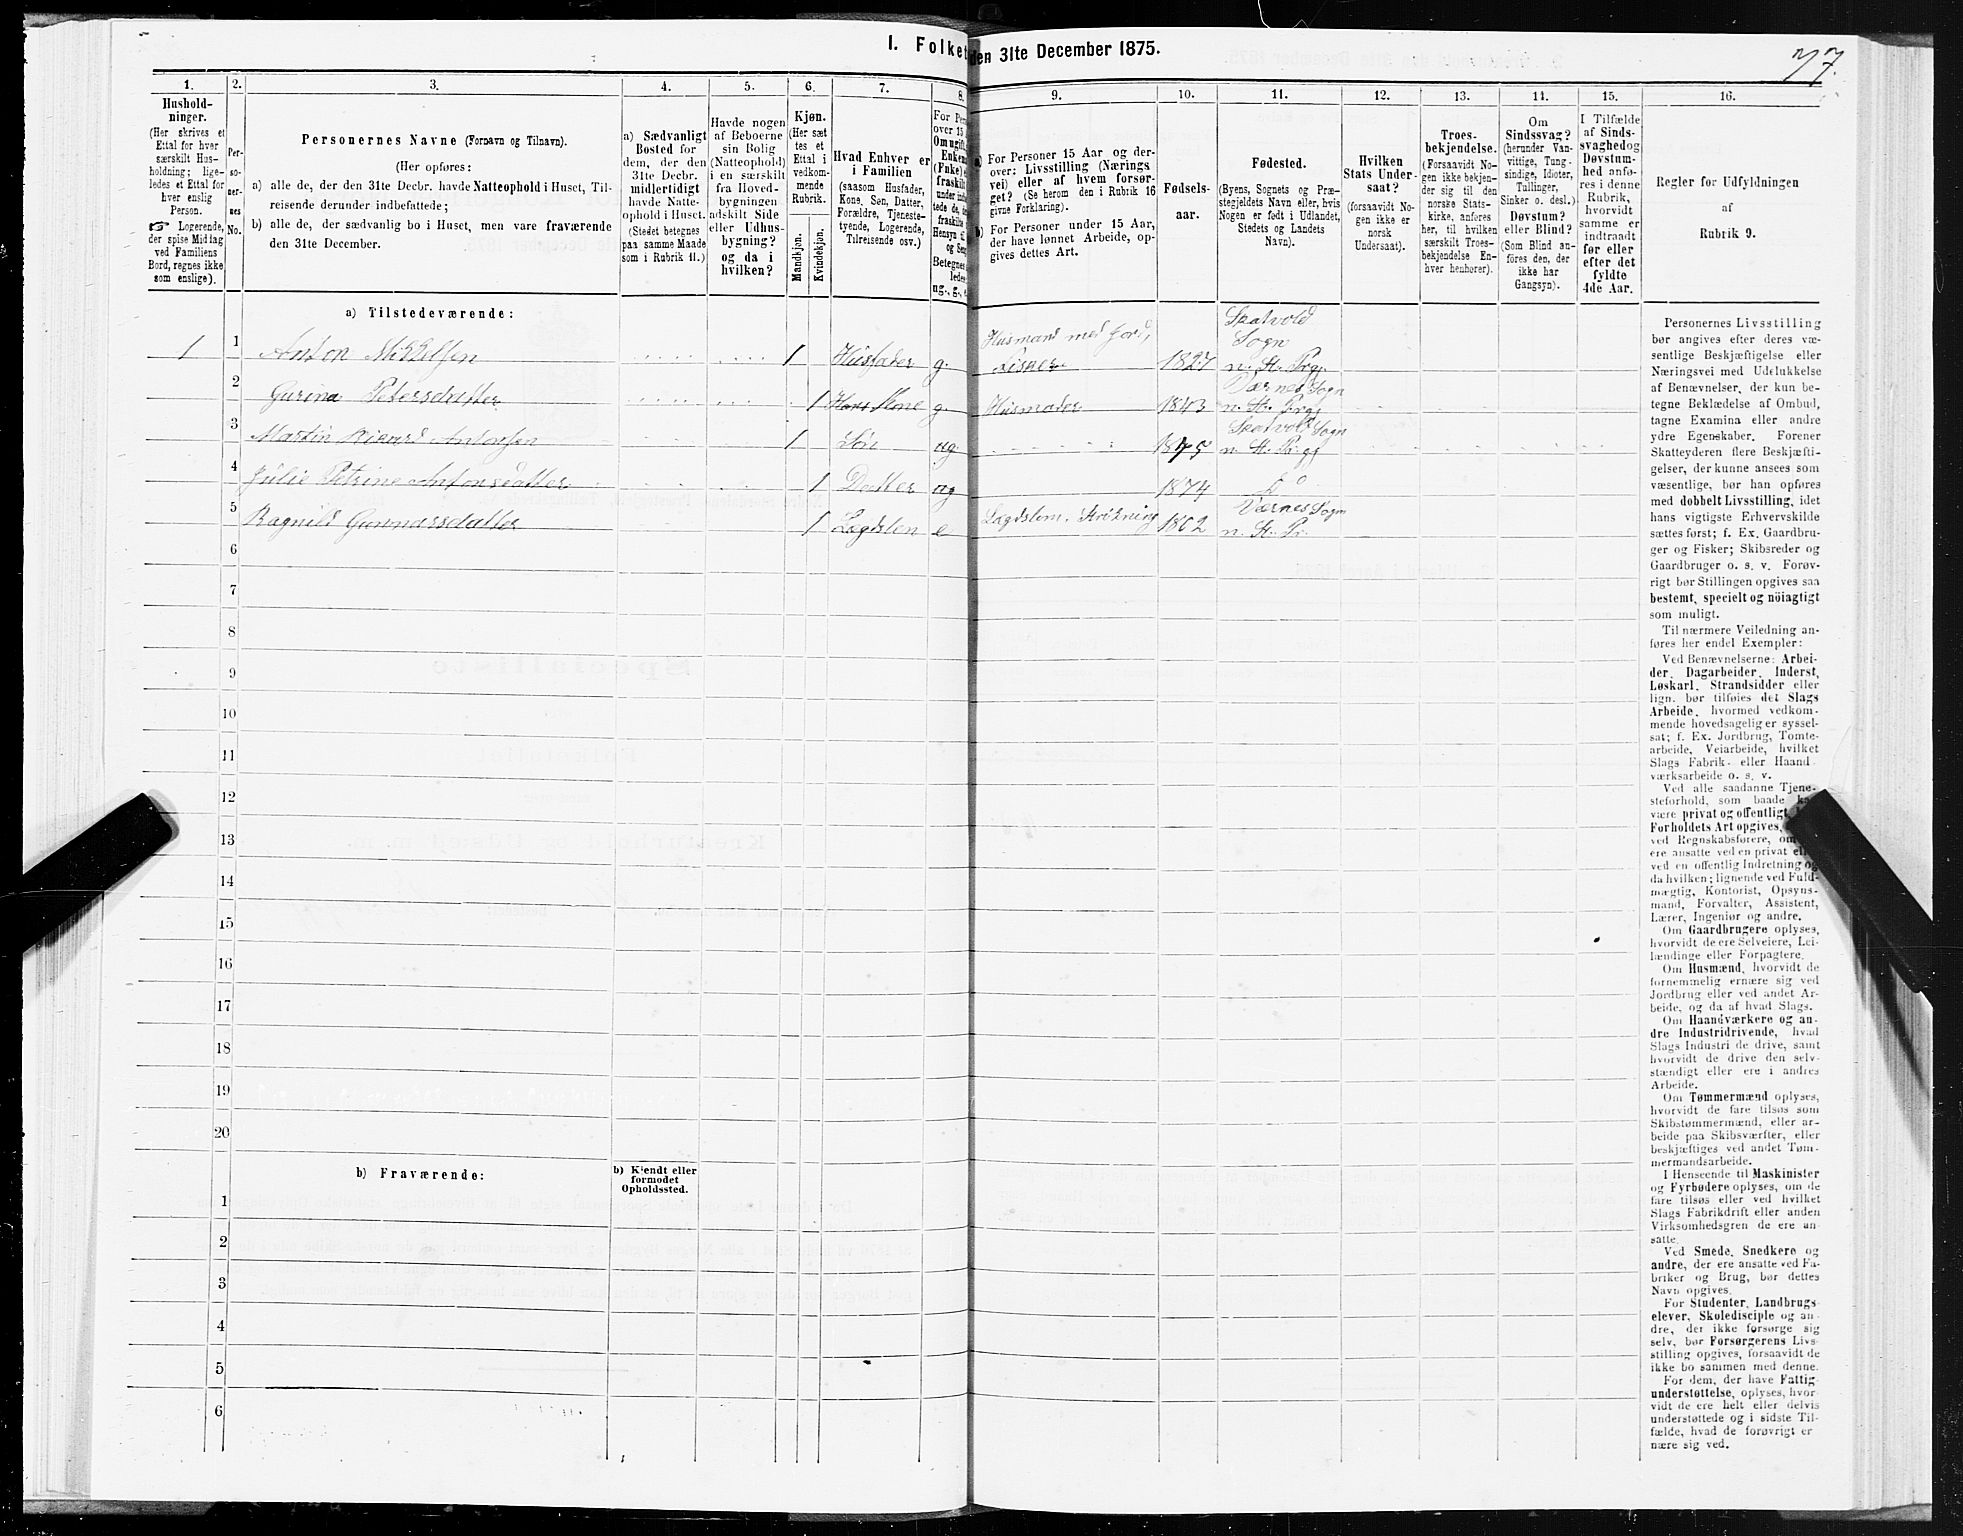 I. Folket
den 31te December 1875.
77.
1.
2.
3.
4.
5.
6.
7.
8.
9.
10.
11.
12.
13.
14.
15.
16.
Hushold-
ninger.
(Her skrives et
Ettal for hver
særskilt Hus-
holdning; lige-
ledes et Ettal for
hver enslig
Person.
☞ Logerende,
der spise Middag
ved Familiens
Bord, regnes ikke
som enslige).
Per-
so-
ner-
nes
No.
Personernes Navne (Fornavn og Tilnavn).
(Her opføres:
a) alle de, der den 31te Decbr. havde Natteophold i Huset, Til-
reisende derunder indbefattede;
b) alle de, der sædvanlig bo i Huset, men vare fraværende
den 31te December.
a) Sædvanligt
Bosted for
dem, der den
31te Decbr.
midlertidigt
havde Natte-
ophold i Huset.
(Stedet betegnes
paa samme Maade
som i Rubrik 11.)
Havde nogen
af Beboerne
sin Bolig
(Natteophold)
i en særskilt
fra Hoved-
bygningen
adskilt Side
eller Udhus-
bygning?
og da i
hvilken?
Kjøn.
(Her sæt-
tes et
Ettal i
vedkom-
mende
Rubrik.
Mandkjøn.
Kvindekjøn.
Hvad Enhver er
i Familien
(saasom Husfader,
Kone, Søn, Datter,
Forældre, Tjeneste-
tyende, Logerende,
Tilreisende osv.)
For Per
over 15
Om ugift,
Enkem
(Enke) e
fraskilt
under indbe
tede de, de
fraskilte
Hensyn til
og Sen
Betegnes
ledes
ug., g., e
a) For Personer 15 Aar og der-
over: Livsstilling (Nærings
vei) eller af hvem forsør-
get? (Se herom den i Rubrik 16
givne Forklaring).
b) For Personer under 15 Aar,
der have lønnet Arbeide, op-
gives dettes Art.
Fødsels-
aar.
Fødested.
(Byens, Sognets og Præ-
stegjeldets Navn eller, hvis
Nogen er født i Udlandet,
Stedets og Landets
Navn).
Hvilken
Stats Under-
saat?
(forsaavidt No-
gen ikke er
norsk
Undersaat).
Troes-
bekjendelse.
(Forsaavidt No-
gen ikke bekjen-
der sig til den
norske Stats-
kirke, anføres
her, til hvilken
særskilt Troes-
bekjendelse En-
hver henhører).
Om
Sindssvag?
(herunder Van-
vittige, Tung-
sindige, Idioter,
Tullinger,
Sinker o. desl.)
Døvstum?
eller Blind?
(Som Blind an-
føres den, der
ikke har
Gangsyn).
I Tilfælde
af Sinds-
svaghed og
Døvstum-
hed anfø-
res i denne
Rubrik,
hvorvidt
samme er
indtraadt
før eller
efter det
fyldte
4de Aar.
Regler før Udfyldningen
af
Rubrik 9.
a) Tilstedeværende:
1 1 Anton Mikkelsen 1 Husfader g. Husmand med Jord, Lisner 1827 Skatvold Sogn n. St. Prgj.
2 Gurina Petersdatter 1 Kone g. Husmoder 1843 Værnes Sogn n. St. Prgj
3 Martin Antonsen 1 Søn ug 1875 Skatvold Sogn n. St. Prgj
4 Julie Petrine Antonsdatter 1 Datter ug 1874 do
5 Ragnild Gunnarsdatter 1 Lægdslem e Lægdslem. Strikning 1802 Værnes Sogn n. St. Pr.
6
7
8
9
10
11
12
13
14
15
16
17
18
19
20
b) Fraværende:
b) Kjendt eller
formodet
Opholdssted.
1
2
3
4
5
6
Personernes Livsstilling
bør angives efter deres væ-
sentlige Beskjæftigelse eller
Næringsvei med Udelukkelse
af Benævnelser, der kun be-
tegne Beklædelse af Ombud,
tagne Examina eller andre
ydre Egenskaber. Forener
Skatteyderen flere Beskjæfti-
gelser, der kunne ansees som
væsentlige, bør han opføres
med dobbelt Livsstilling, idet
hans vigtigste Erhvervskilde
sættes først; f. Ex. Gaardbru-
ger og Fisker; Skibsreder og
Gaardbruger o. s. v. Forøv-
rigt bør Stillingen opgives saa
bestemt, specielt og nøiagtigt
som muligt.
Til nærmere Veiledning an-
føres her endel Exempler:
Ved Benævnelserne: Arbei-
der, Dagarbeider, Inderst,
Løskarl, Strandsidder eller
lign. bør tilføies det Slags
Arbeide, hvormed vedkom-
mende hovedsagelig er syssel-
sat; f. Ex. Jordbrug, Tomte-
arbeide, Veiarbeide, hvilket
Slags Fabrik- eller Haand-
værksarbeide o. s. v.
Ved alle saadanne Tjene-
steforhold, som baade ka
være privat og offentligt,
Forholdets Art opgives,
ved Regnskabsførere, om
ere ansatte ved en privat el
ved en offentlig Indretning og
da hvilken; lignende ved Fuld-
mægtig, Kontorist, Opsyns-
mand, Forvalter, Assistent,
Lærer, Ingeniør og andre.
Om Gaardbrugere oplyses,
hvorvidt de ere Selveiere, Lei-
lændinge eller Forpagtere.
Om Husmænd, hvorvidt de
fornemmelig ernære sig ved
Jordbrug eller ved andet Ar-
beide, og da af hvad Slags.
Om Haandværkere og an-
dre Industridrivende, hvad
Slags Industri de drive, samt
hvorvidt de drive den selv-
stændigt eller ere i andres
Arbeide.
Om Tømmermænd oplyses,
hvorvidt de fare tilsøs som
Skibstømmermænd, eller ar-
beide paa Skibsværfter, eller
beskjæftiges ved andet Tøm-
mermandsarbeide.
I Henseende til Maskinister
og Fyrbødere oplyses, om de
fare tilsøs eller ved hvilket
Slags Fabrikdrift eller anden
Virksomhedsgren de ere an-
satte.
Ved Smede, Snedkere og
andre, der ere ansatte ved Fa-
briker og Brug, bør dettes
Navn opgives.
For Studenter, Landbrugs-
elever, Skoledisciple og an-
dre, der ikke forsørge sig
selv, bør Forsørgerens Livs-
stilling opgives, forsaavidt de
ikke bo sammen med denne.
For dem, der have Fattig-
understøttelse, oplyses, hvor-
vidt de ere helt eller delvis
understøttede og i sidste Til-
fælde, hvad de forøvrigt er-
nære sig ved.